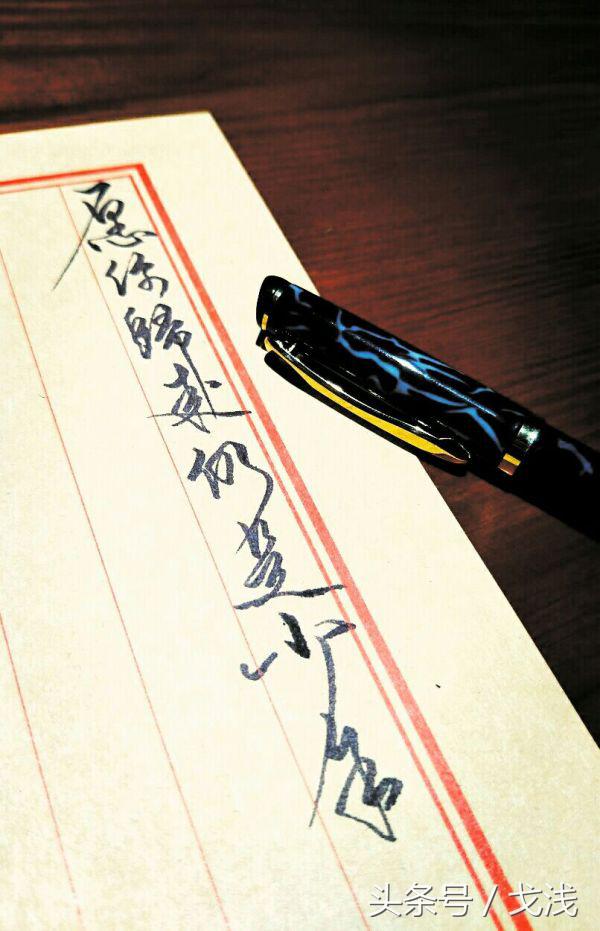 愿你歸来仍是少年
头条号 / 戈浅